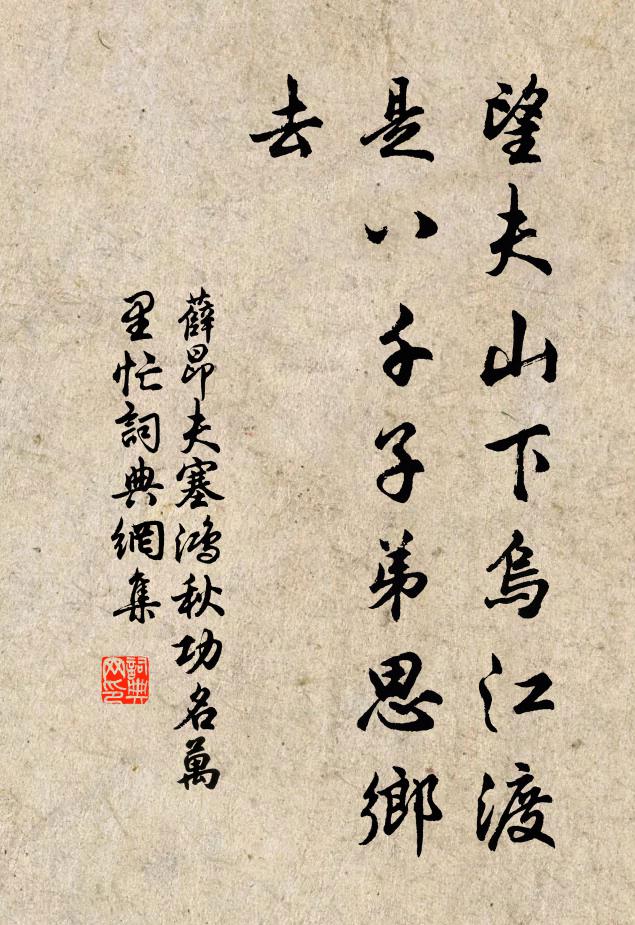 望夫山下烏江渡
是八千子弟思鄉
去
薛昂夫塞鴻秋功名萬
里忙詞典網集
詞典
网印